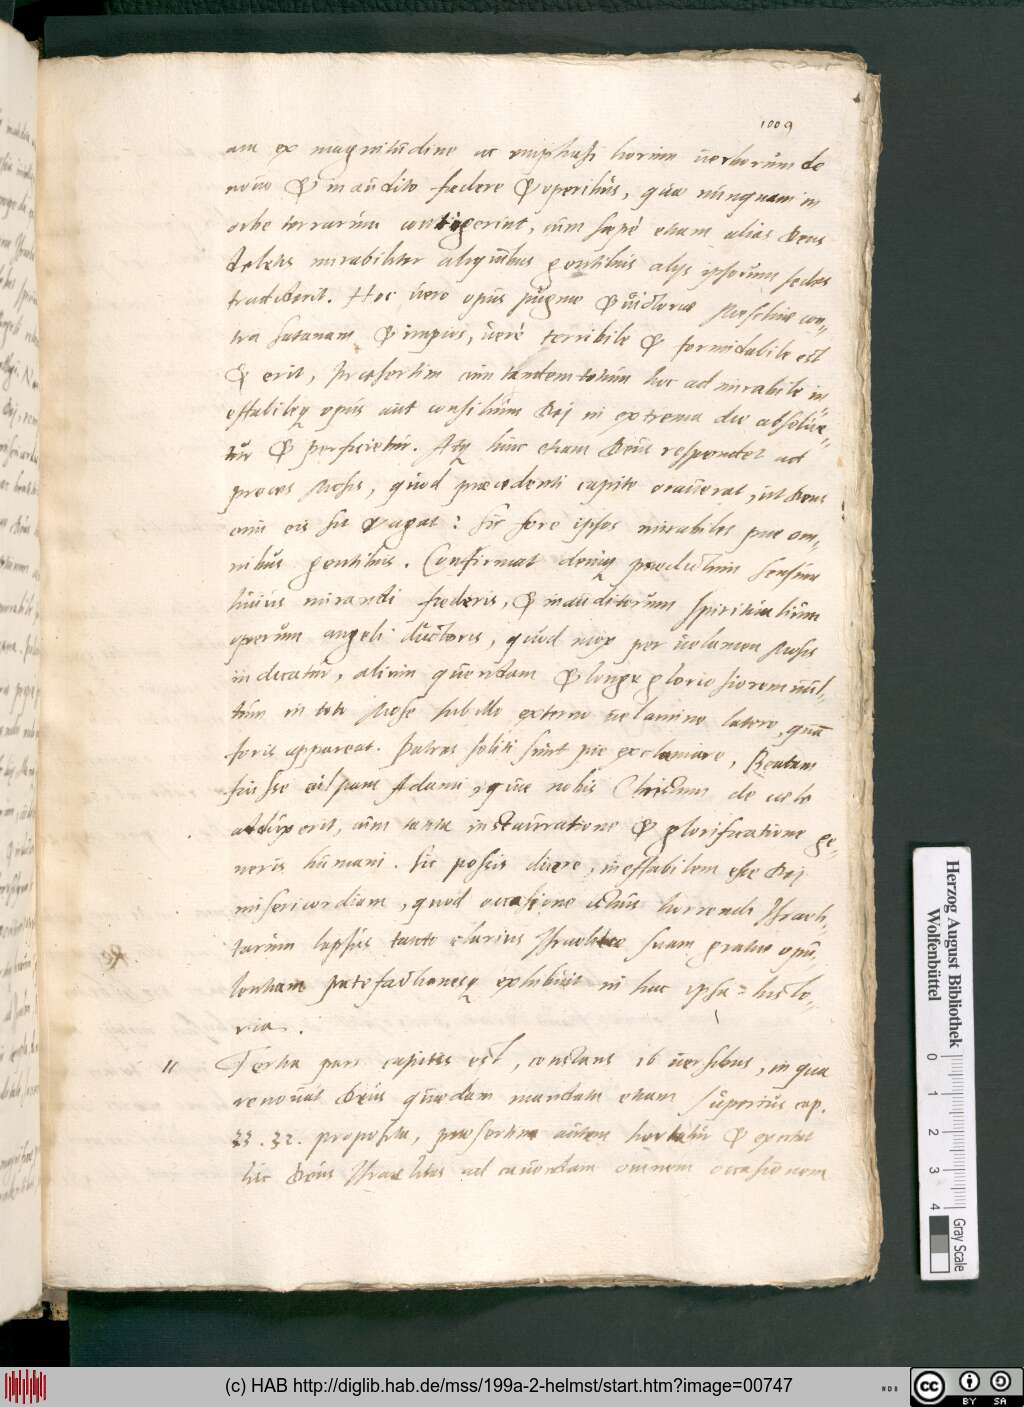 1009
am ex magnitudine ac emphasi horum verborum de
novo & inaudito foedere & operibus, quae nunquam in
orbe terrarum contigerint, cum saepè etiam alias Deus
deletis mirabiliter aliquibus gentibus alijs ipsorum sedes
tradiderit. Hoc vero opus pugnae & victoriae Meschiae con-
tra Satanam & impios, verè terribile & formidabile est
& erit, praesertim cum tandem totum hoc admirabile in
effabileq opus aut consilium Dej in extrema die absolve-
tur & perficietur. Atq hinc etiam Deus respondet ad
preces Mosis, quod praecedenti capite oraverat, ut Deus
cum eis sit & agat: sic fore ipsos mirabiles prae om-
nibus gentibus. Confirmat deniq praedictum sensum
huius mirandi foederis, & inauditorum spiritualium
operum angeli ductoris, quod mox per velamen Mosis
indicatur, alium quendam & longe gloriosiorem vul-
tum in toto Mose sub illo externo velamine latere, quam
foris appareat. Patres soliti sunt pie exclamare, Beatam
fuisse culpam Adami, quae nobis Christum de coelo
adduxerit, cum tanta instauratione & glorificatione ge-
neris humani. Sic possis dicere, ineffabilem esse Dej
misericordiam, quod occasione istius horrendi Israeli-
tarum lapsus tanto clarius Israelitae suam gratiae opu-
lentiam patefactionesq exhibuit in hac ipsa histo-
ria.
11 Tertia pars capitis est, constans 16 versibus, in qua
renovat Deus quaedam mandata etiam superius cap.
23. 32. proposita, praesertim autem hortatur & excitat
hic Deus Israelitas ad cavendam omnem occasionem
Herzog August Bibliothek
Wolfenbüttel
0 1 2 3 4
Gray Scale
(c) HAB http://diglib.hab.de/mss/199a-2-helmst/start.htm?image=00747
cc BY SA